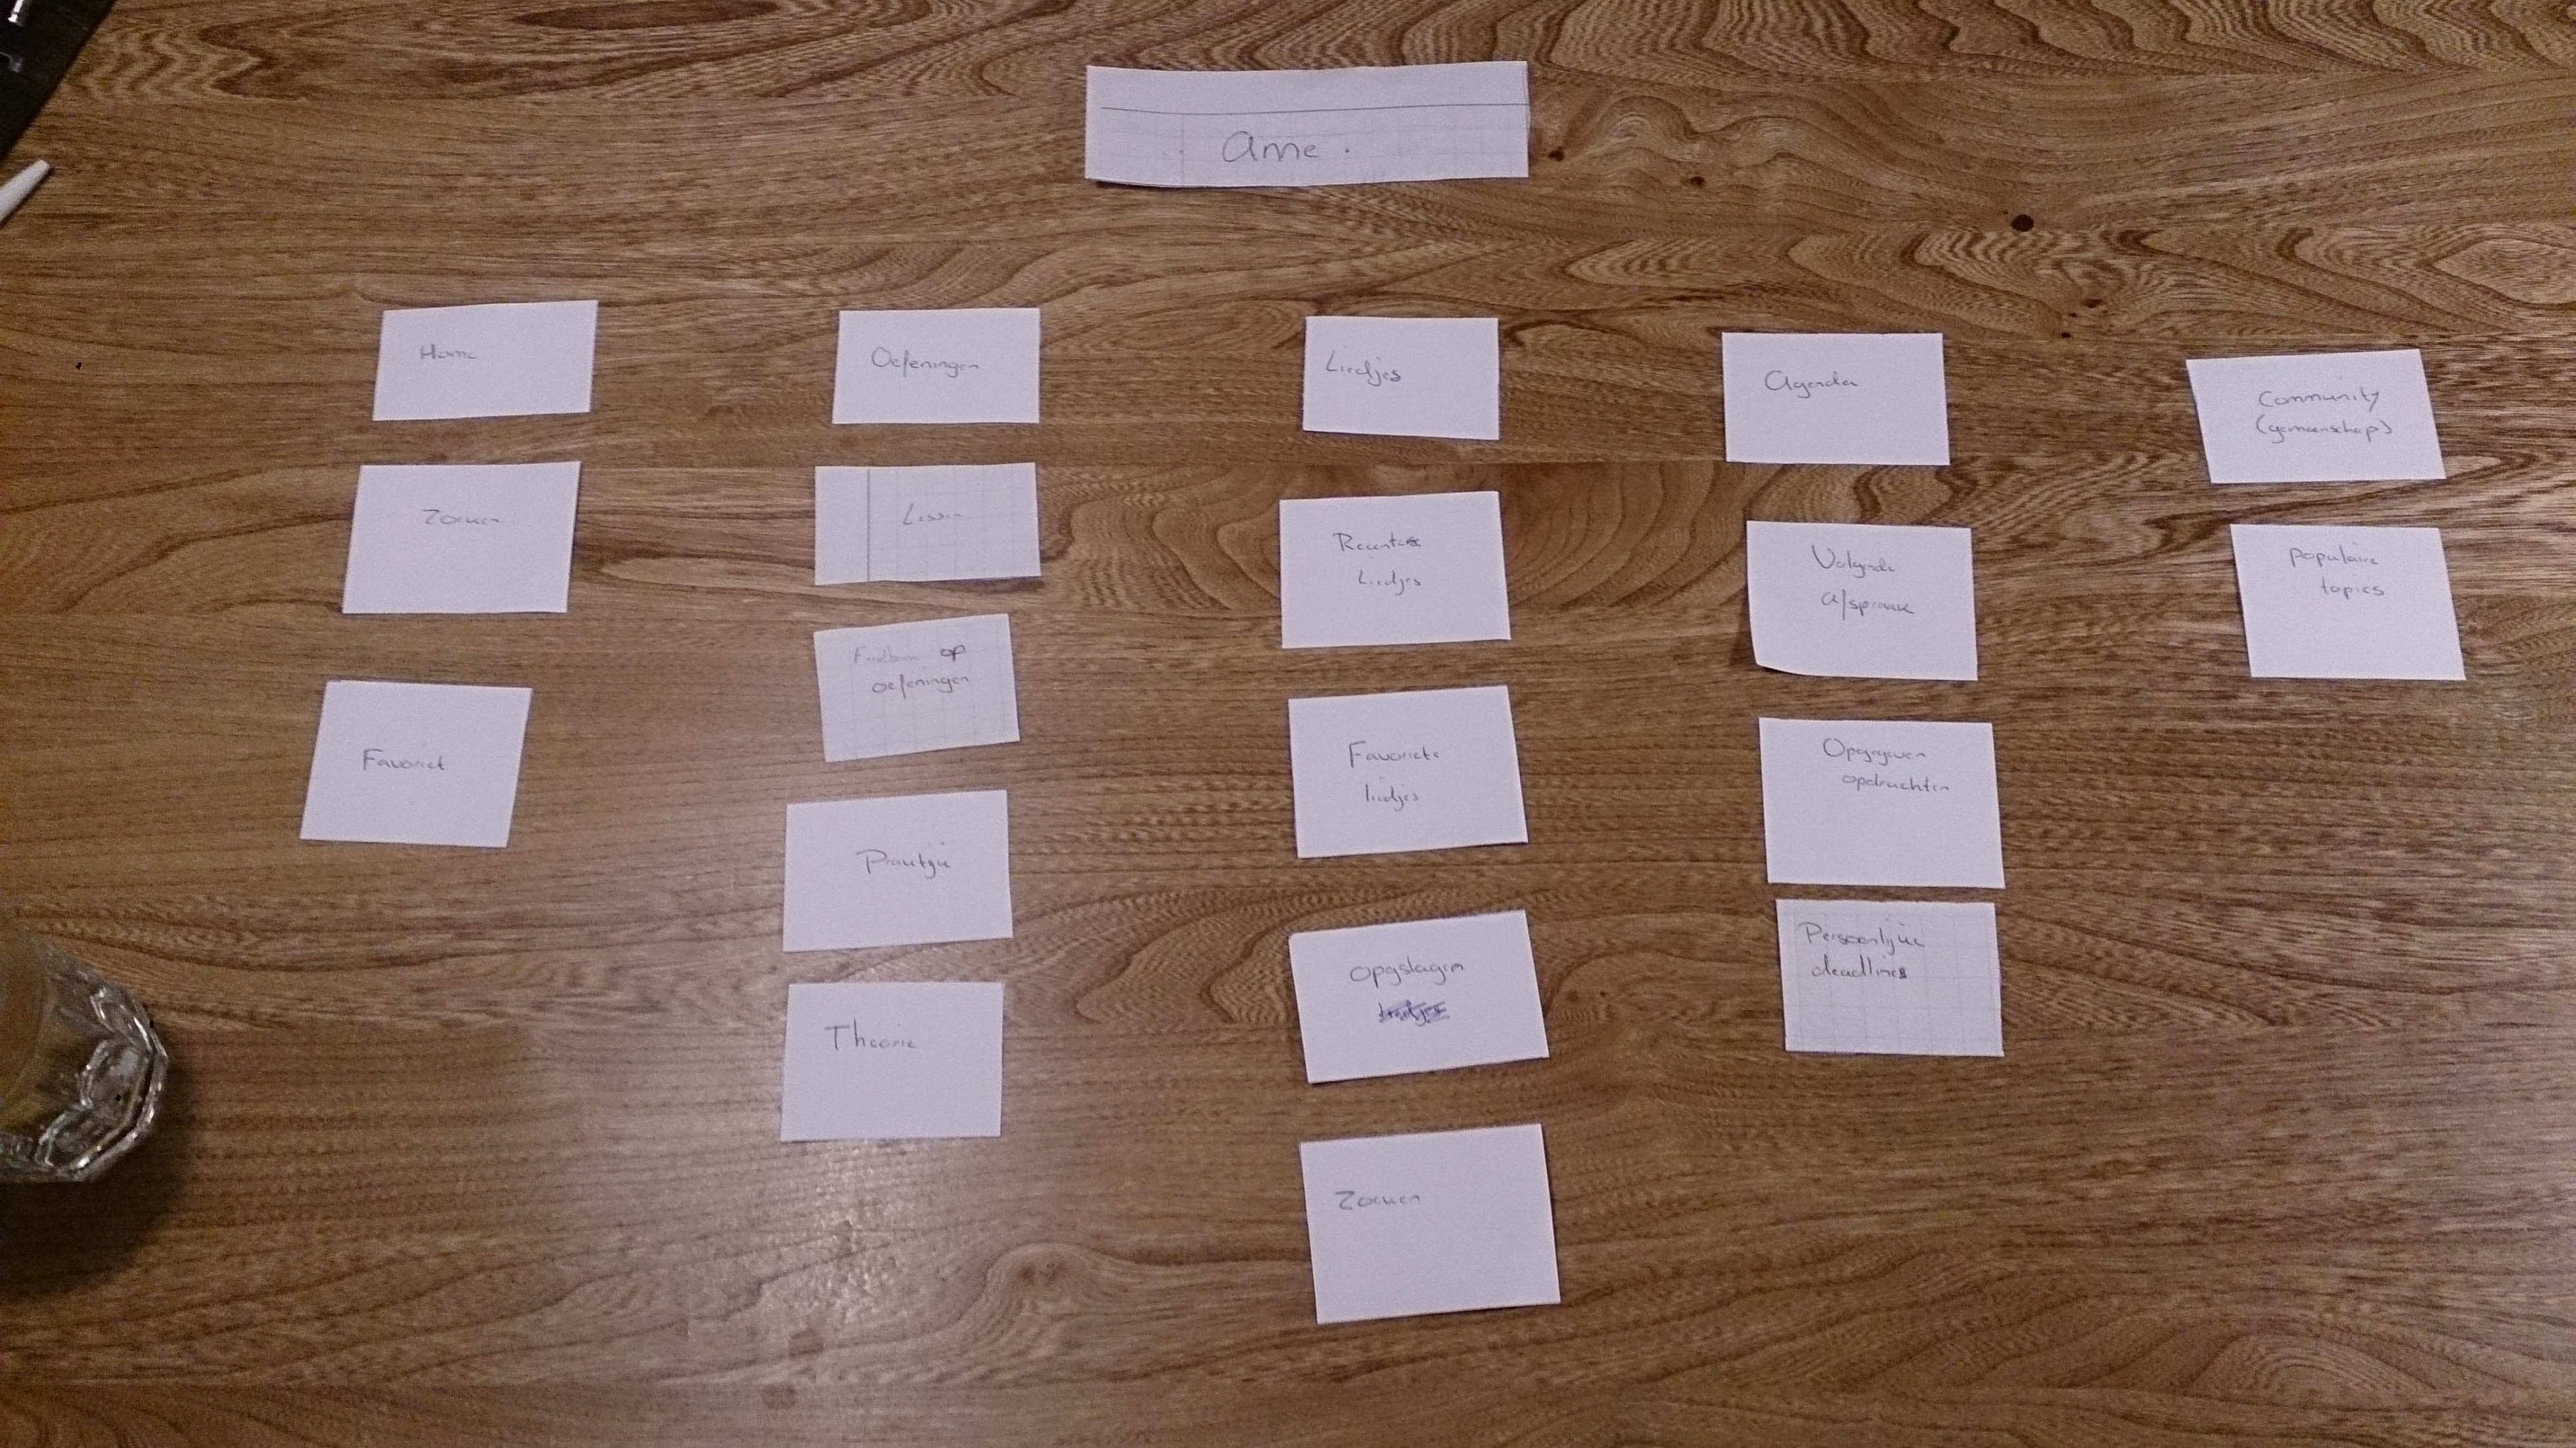 Anne
Home
Zoeken
Favoriet
Oefeningen
Lessen
Feedback op
oefeningen
Praktijk
Theorie
Liedjes
Recente
Liedjes
Favoriete
liedjes
Opgeslagen
Zoeken
Agenda
Volgende
afspraak
Opgegeven
opdrachten
Persoonlijke
deadlines
Community
(gemeenschap)
populaire
topics